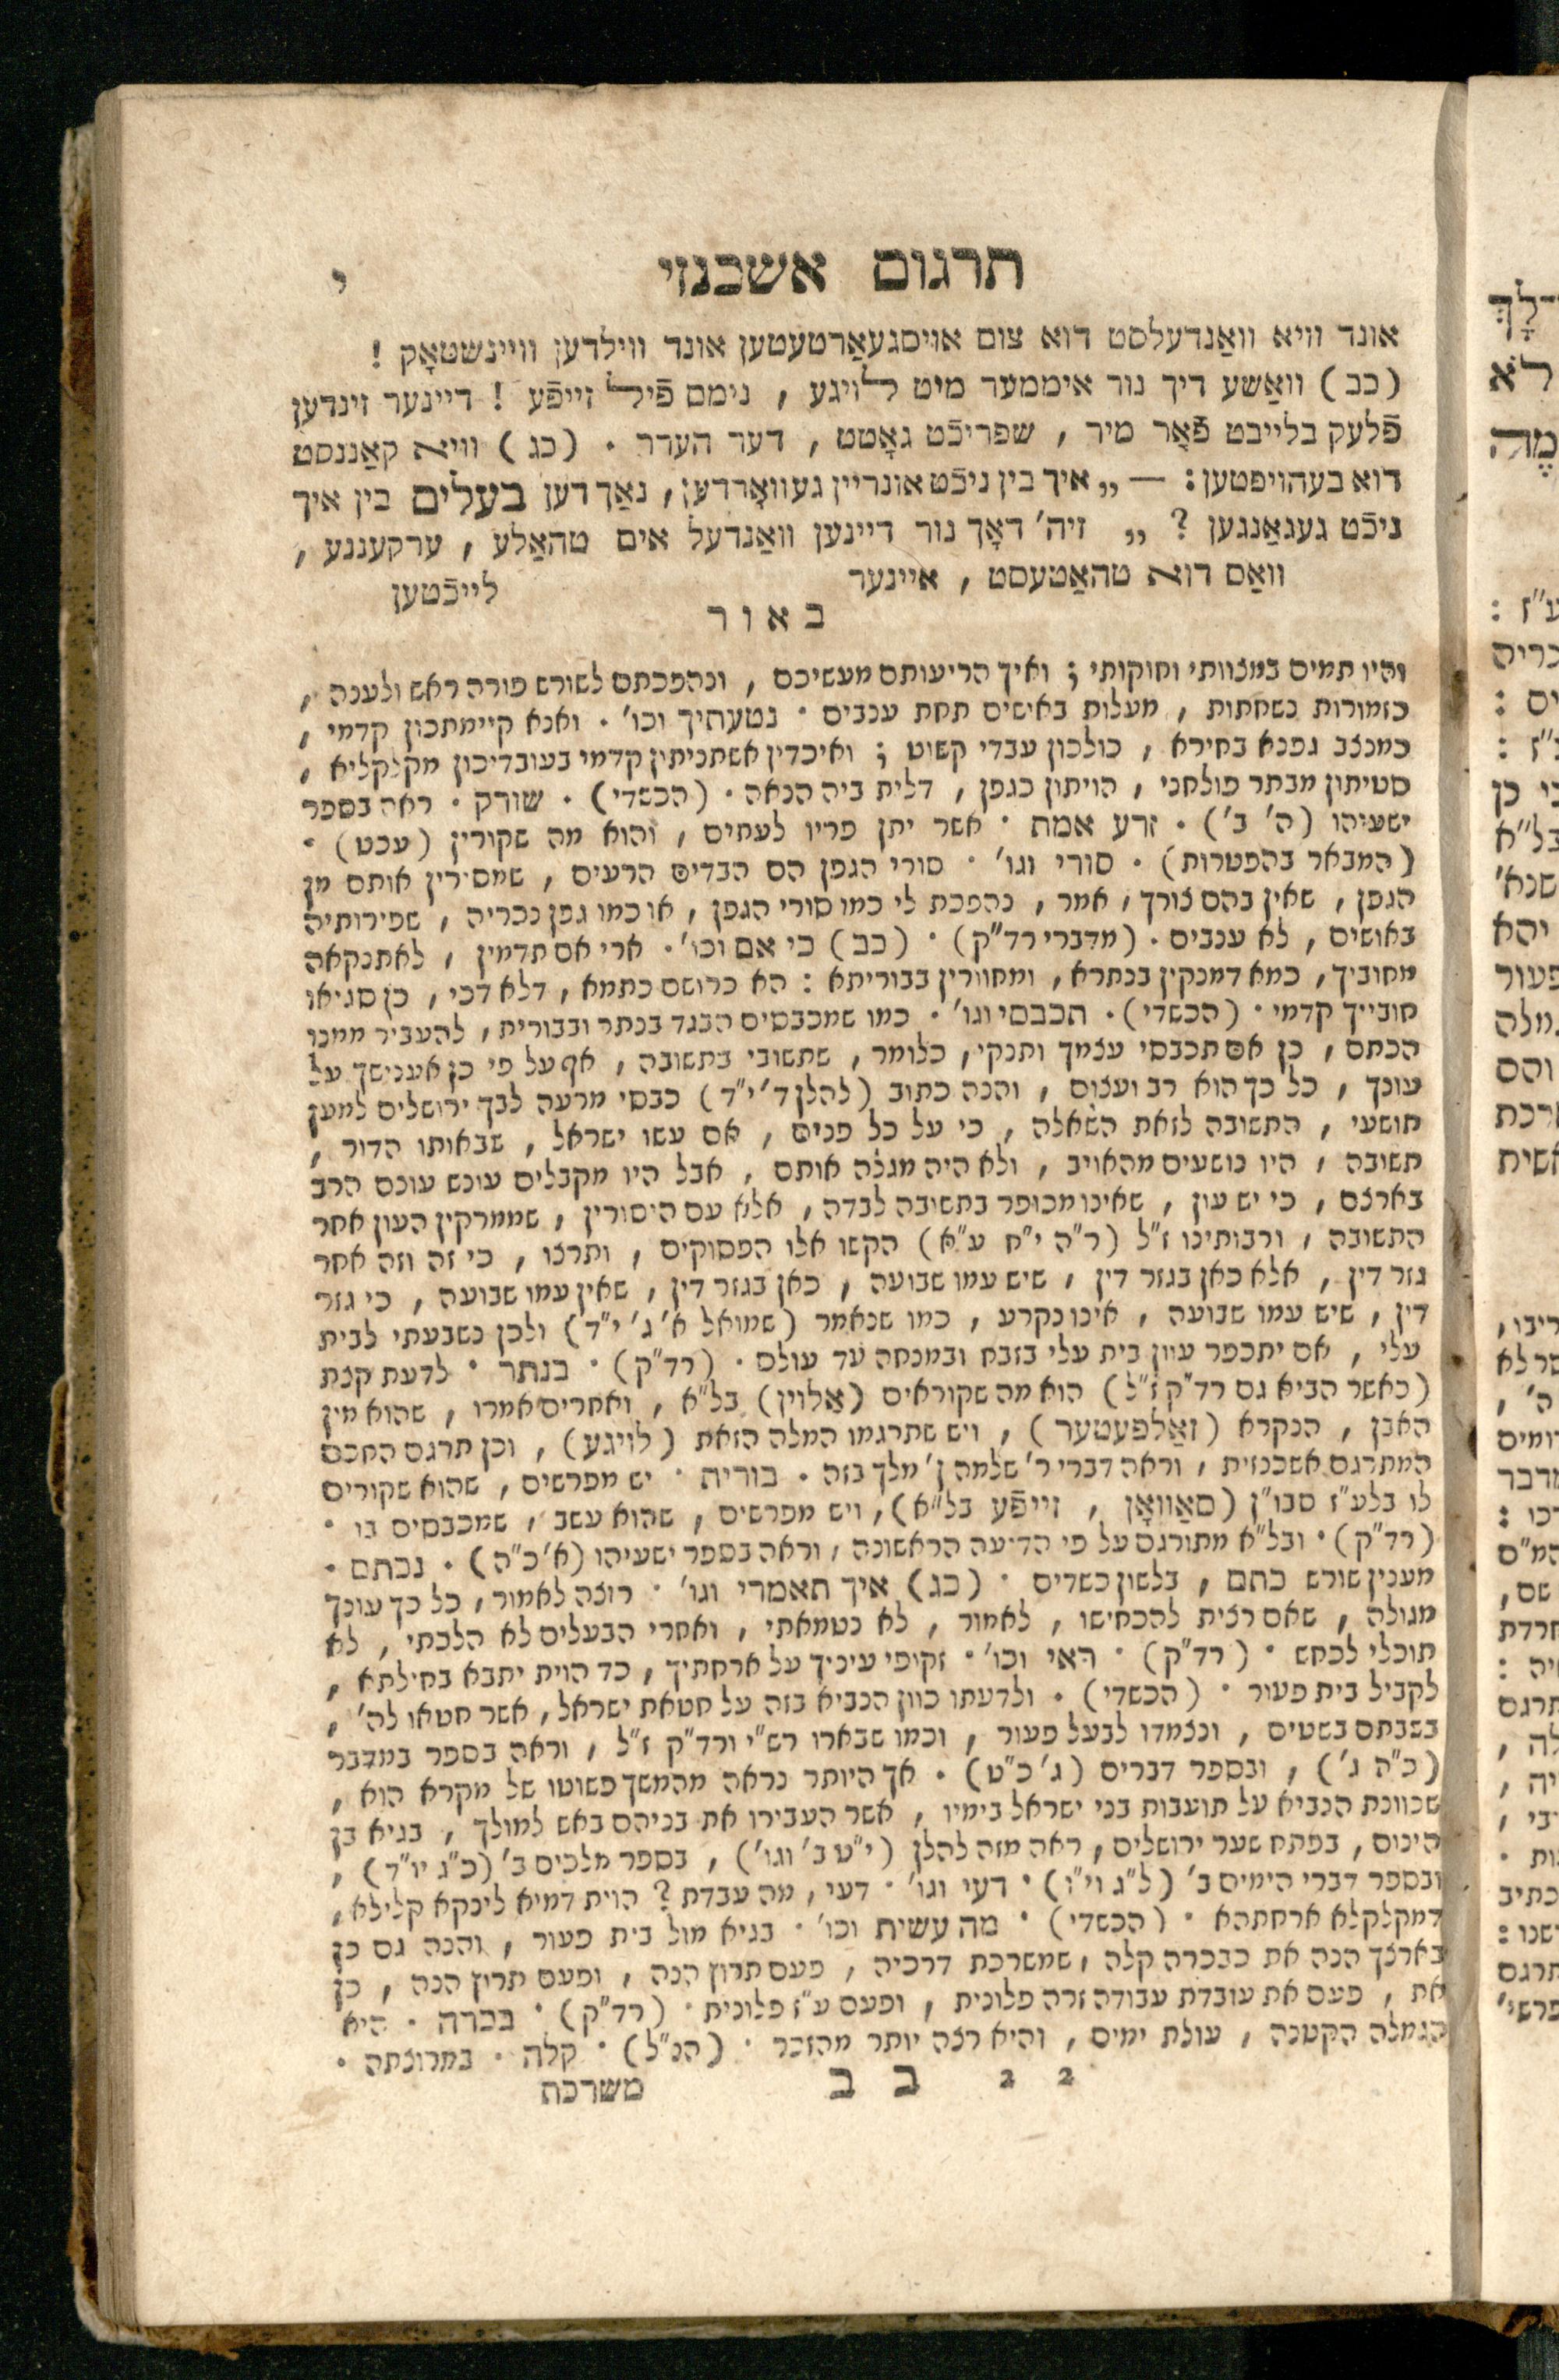 תרגום אשכנזי י
אונד וויא וואַנדעלסט דוא צום אויסגעאַרטעטען אונד ווילדען וויינשטאָק !
(כב) וואַשע דיך נור איממער מיט לויגע , נימם פֿיל זייפֿע ! דיינער זינדען
פֿלעק בלייבט פֿאָר מיר , שפריכֿט גאָטט , דער הערר . (כג) וויא קאַננסט
דוא בעהויפטען : — „ איך בין ניכֿט אונריין געוואָררדען , נאַך דען בעלים בין איך
ניכֿט געגאַנגען ? „ זיה' דאָך נור דיינען וואַנדעל אים טהאַלע , ערקעננע ,
וואַס דוא טהאַטעסט , איינער לייכֿטען
באור
והיו תמים במצוותי וחוקותי ; ואיך הריעותם מעשיכם , ונהפכתם לשורש פורה ראש ולענה ,
כזמורות נשחתות , מעלות באישים תחת ענבים · נטעתיך וכו' . ואנא קיימתכון קדמי ,
כמנצב גפנא בחירא , כולכון עבדי קשוט ; ואיכדין אשתניתון קדמי בעובדיכון מקלקליא ,
סטיתון מבתר פולחני , הויתון כגפן , דלית ביה הנאה . (הכשדי) . שורק . ראה בספר
ישעיהו (ה' ב') . זרע אמת · אשר יתן פריו לעתים , והוא מה שקורין (עכט) .
(המבאר בהפטרות) . סורי וגו' · סורי הגפן הם הבדים הרעים , שמסירין אותם מן
הגפן , שאין בהם צורך , אמר , נהפכת לי כמו סורי הגפן , או כמו גפן נכריה , שפירותיה
באושים , לא ענבים . (מדברי רד"ק) . (כב) כי אם וכו' . ארי אם תדמין , לאתנקאה
מחוביך , כמא דמנקין בנתרא , ומחוורין בבוריתא : הא כרושם כתמא , דלא דכי , כן סגיאו
חובייך קדמי . (הכשדי) . תכבסי וגו' . כמו שמכבסים הבגד בנתר ובבורית , להעביר ממנו
הכתם , כן אם תכבסי עצמך ותנקי , כלומר , שתשובי בתשובה , אף על פי כן אענישך על
עונך , כל כך הוא רב ועצום , והנה כתוב (להלן ד' י"ד) כבסי מרעה לבך ירושלים למען
תושעי , התשובה לזאת השאלה , כי על כל פנים , אם עשו ישראל , שבאותו הדור ,
תשובה , היו נושעים מהאויב , ולא היה מגלה אותם , אבל היו מקבלים עונש עונם הרב
בארצם , כי יש עון , שאינו מכופר בתשובה לבדה , אלא עם היסורין , שממרקין העון אחר
התשובה , ורבותינו ז"ל (ר"ה י"ח ע"א) הקשו אלו הפסוקים , ותרצו , כי זה וזה אחר
גזר דין , אלא כאן בגזר דין , שיש עמו שבועה , כאן בגזר דין , שאין עמו שבועה , כי גזר
דין , שיש עמו שבועה , אינו נקרע , כמו שנאמר (שמואל א' ג' י"ד) ולכן נשבעתי לבית
עלי , אם יתכפר עוון בית עלי בזבח ובמנחה עד עולם . (רד"ק) . בנתר · לדעת קצת
(כאשר הביא גם רד"ק ז"ל) הוא מה שקוראים (אַלוין) בל"א , ואחרים אמרו , שהוא מין
האבן , הנקרא (זאַלפעטער) , ויש שתרגמו המלה הזאת (לויגע) , וכן תרגם החכם
המתרגם אשכנזית , וראה דברי ר' שלמה ן' מלך בזה . בורית · יש מפרשים , שהוא שקורים
לו בלע"ז סבו"ן (סאַוואָן , זייפֿע בל"א) , ויש מפרשים , שהוא עשב , שמכבסים בו .
(רד"ק) . ובל"א מתורגם על פי הדיעה הראשונה , וראה בספר ישעיהו (א' כ"ה) . נכתם .
מענין שורש כתם , בלשון כשדים . (כג) איך תאמרי וגו' · רוצה לאמור , כל כך עונך
מגולה , שאם רצית להכחישו , לאמור , לא נטמאתי , ואחרי הבעלים לא הלכתי , לא
תוכלי לכחש . (רד"ק) . ראי וכו' . זקופי עיניך על ארחתיך , כד הוית יתבא בחילתא ,
לקביל בית פעור . (הכשדי) . ולדעתו כוון הנביא בזה על חטאת ישראל , אשר חטאו לה' ,
בשבתם בשטים , ונצמדו לבעל פעור , וכמו שבארו רש"י ורד"ק ז"ל , וראה בספר במדבר
(כ"ה ג') , ובספר דברים (ג' כ"ט) . אך היותר נראה מהמשך פשוטו של מקרא הוא ,
שכוונת הנביא על תועבות בני ישראל בימיו , אשר העבירו את בניהם באש למולך , בגיא בן
הינום , בפתח שער ירושלים , ראה מזה להלן (י"ט ב' וגו') , בספר מלכים ב' (כ"ג יו"ד) ,
ובספר דברי הימים ב' (ל"ג וי"ו) . דעי וגו' · דעי , מה עבדת ? הוית דמיא לינקא קלילא ,
דמקלקלא ארחתהא . (הכשדי) . מה עשית וכו' · בגיא מול בית פעור , והנה גם כן
בארצך הנה את כבכרה קלה , שמשרכת דרכיה , פעם תרוץ הנה , ופעם תרוץ הנה , כן
את , פעם את עובדת עבודה זרה פלונית , ופעם ע"ז פלונית . (רד"ק) . בכרה . היא
הגמלה הקטנה , עולת ימים , והיא רצה יותר מהזכר . (הנ"ל) . קלה . במרוצתה .
2 2 ב ב משרכת